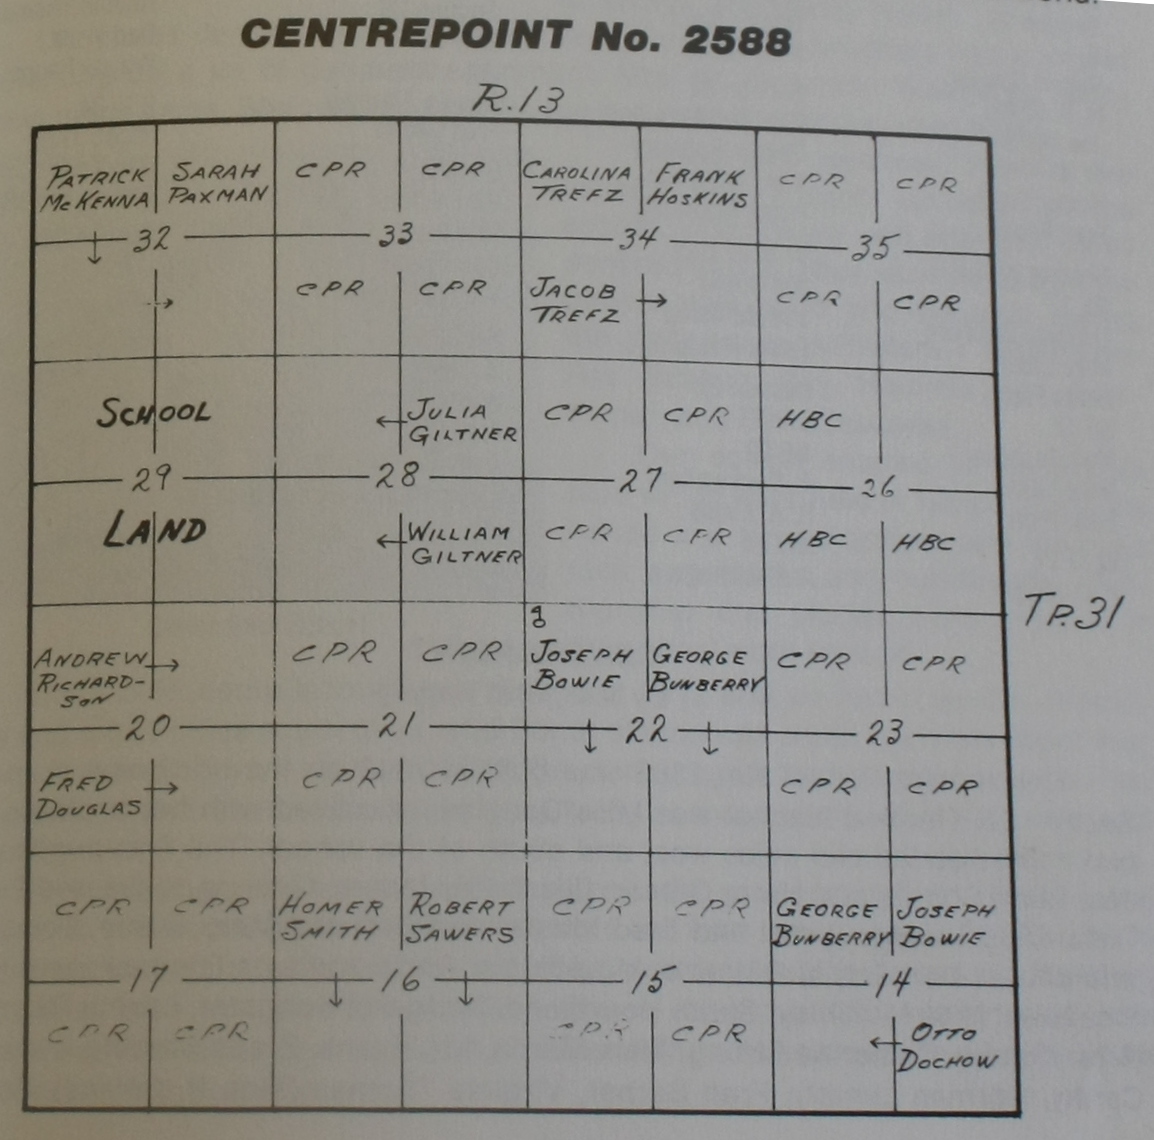 CENTREPOINT No. 2588
R.13
PATRICK McKENNA SARAH PAXMAN CPR CPR CAROLINA TREFZ FRANK HOSKINS CPR CPR
32 33 34 35
CPR CPR JACOB TREFZ CPR CPR
SCHOOL JULIA GILTNER CPR CPR HBC
29 28 27 26
LAND WILLIAM GILTNER CPR CPR HBC HBC
TP.31
ANDREW RICHARD-SON CPR CPR JOSEPH BOWIE GEORGE BUNBERRY CPR CPR
20 21 22 23
FRED DOUGLAS CPR CPR CPR CPR
CPR CPR HOMER SMITH ROBERT SAWERS CPR CPR GEORGE BUNBERRY JOSEPH BOWIE
17 16 15 14
CPR CPR CPR CPR OTTO DOCHOW